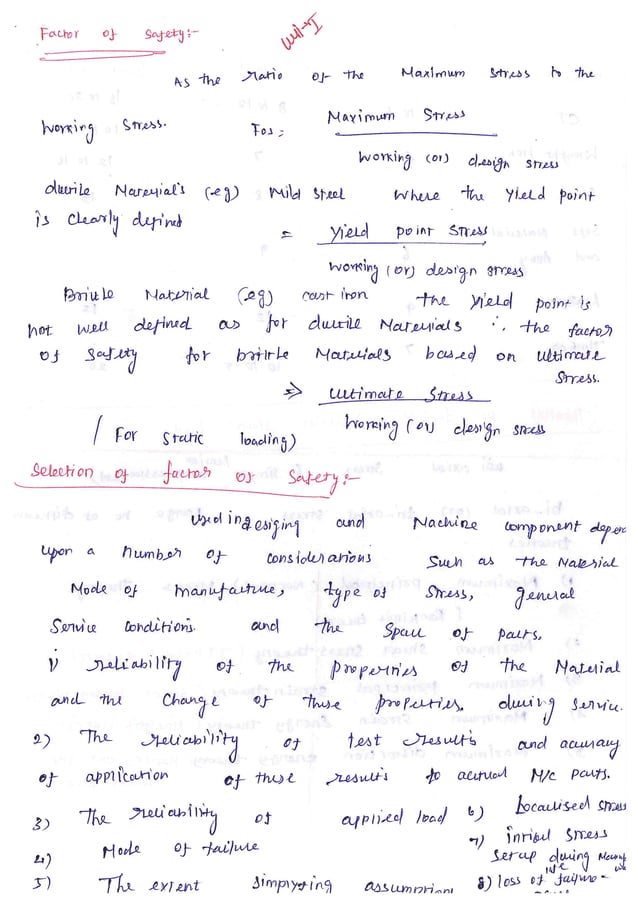 Factor of Safety:-
As the ratio of the Maximum Stress to the
Working Stress. Fos = Maximum Stress
Working (or) design stress
ductile Material's (eg) Mild steel where the yield point
is clearly defined = yield point stress
Working (or) design stress
Brittle Material (eg) cast iron the yield point is
not well defined as for ductile Materials ∴ the factor
of safety for brittle Materials based on ultimate
stress.
=> ultimate stress
Working (or) design stress
(For static loading)
Selection of factor of Safety:-
Used in desiging and Machine component depen
upon a number of considerations Such as the Material
Mode of manufacture, type of stress, general
Service conditions and the of parts.
1) reliability of the properties of the Material
and the change of these properties, during service.
2) The reliability of test result's and accuracy
of application of these results to actual M/c parts.
3) The reliability of applied load 6) Localised stress
4) Mode of failure 7) initial stress
set up during Manuf
5) The extent simplyfing assumption 8) loss of life failure